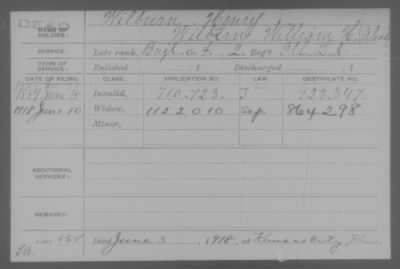 DEAD
Wilburn, Henry
NAME OF SOLDIER:
Wilburn, William H. Alias
SERVICE: Late rank, Bugl. Co. F. 2. Reg't Ill. L.A.
TERM OF SERVICE: Enlisted , 1 Discharged , 1
DATE OF FILING. CLASS. APPLICATION NO. LAW. CERTIFICATE NO.
1889 June 14 Invalid, 710.723. J 923.347.
1918 June 10 Widow, 1122010 864298
Minor,
ADDITIONAL SERVICES:
REMARKS:
Died June 3, 1918, at Kansas City, Kans.